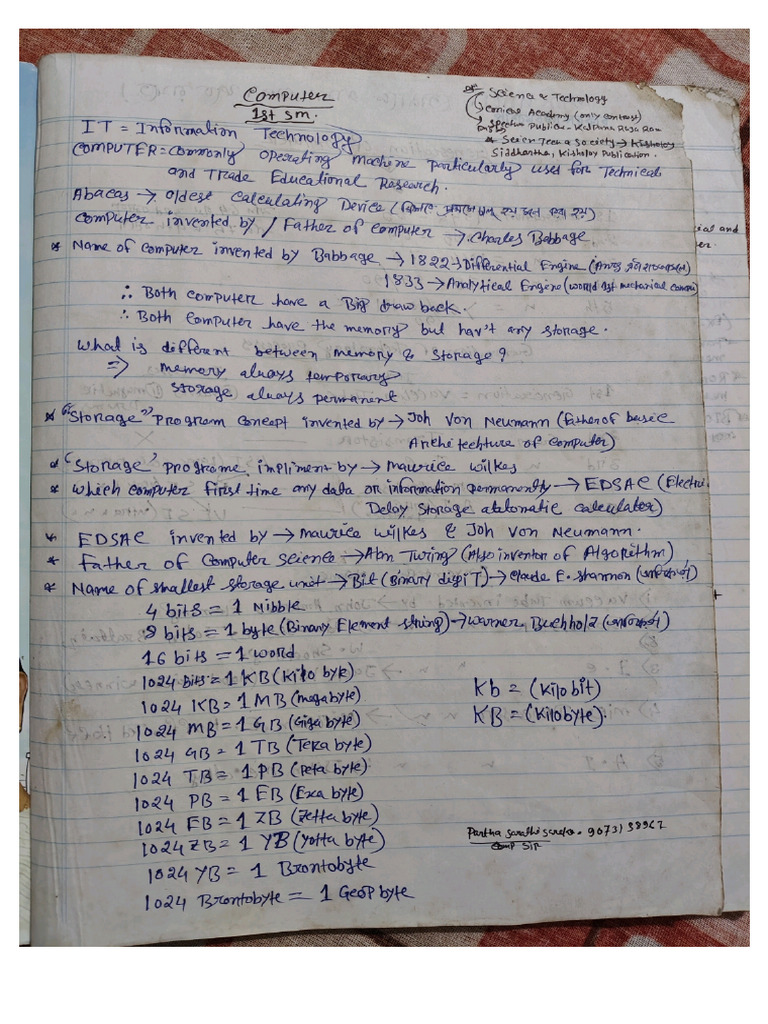 Computer
1st sm.
Science & Technology
Conica Academy (only contrast)
Spectrum Publica - Kalpana Raja Ram
* Scien Tech & Society → Kisholoy
Siddhartha, Kisholoy Publication.
IT = Information Technology
COMPUTER = commonly operating machine particularly used for Technical
and Trade Educational Research.
Abacas → oldest calculating Device
Computer invented by / Father of computer → Charles Babbage
* Name of computer invented by Babbage → 1822 → Differential Engine
1833 → Analytical Engine (world 1st mechanical compu
∴ Both computer have a Big draw back.
∴ Both Computer have the memory but hav't any storage.
What is different between memory & storage?
⇒ memory always temporary
storage always permanent
* "Storage" Program concept invented by → Joh Von Neumann (father of basic
Architechture of computer)
* 'Storage' programe impliment by → maurice wilkes
* which computer first time any data or information permanently → EDSAC (Electri
Delay Storage automatic calculater)
* EDSAC invented by → maurice wilkes & Joh Von Neumann.
* Father of Computer Science → Aln Turing (Also inventor of Algorithm)
* Name of smallest storage unit → Bit (Binary digiT) → Claude E. shannon
4 bits = 1 Nibble
8 bits = 1 byte (Binary Element string) → Warner Buchholz
16 bits = 1 word
1024 Bits = 1 KB (Kilo byte)
1024 KB = 1 MB (mega byte)
1024 MB = 1 GB (Giga byte)
1024 GB = 1 TB (Tera byte)
1024 TB = 1 PB (Peta byte)
1024 PB = 1 EB (Exa byte)
1024 EB = 1 ZB (Zetta byte)
1024 ZB = 1 YB (Yotta byte)
1024 YB = 1 Brontobyte
1024 Brontobyte = 1 Geop byte
Kb = (Kilobit)
KB = (Kilobyte).
Partha Sarathi
Comp Sir